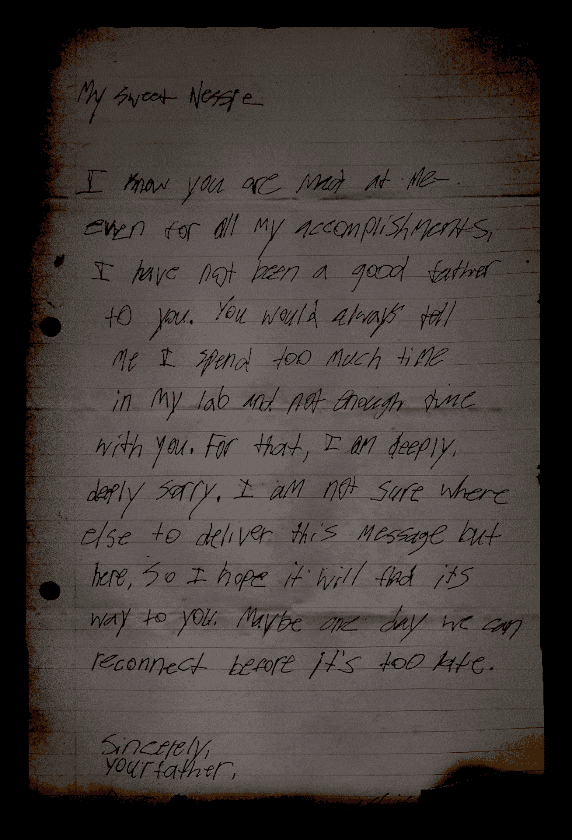 My sweet Nessie
I know you are mad at me-
even for all my accomplishments,
I have not been a good father
to you. You would always tell
me I spend too much time
in my lab and not enough time
with you. For that, I am deeply,
deeply sorry. I am not sure where
else to deliver this message but
here, so I hope it will find its
way to you. Maybe one day we can
reconnect before it's too late.
Sincerely,
your father,